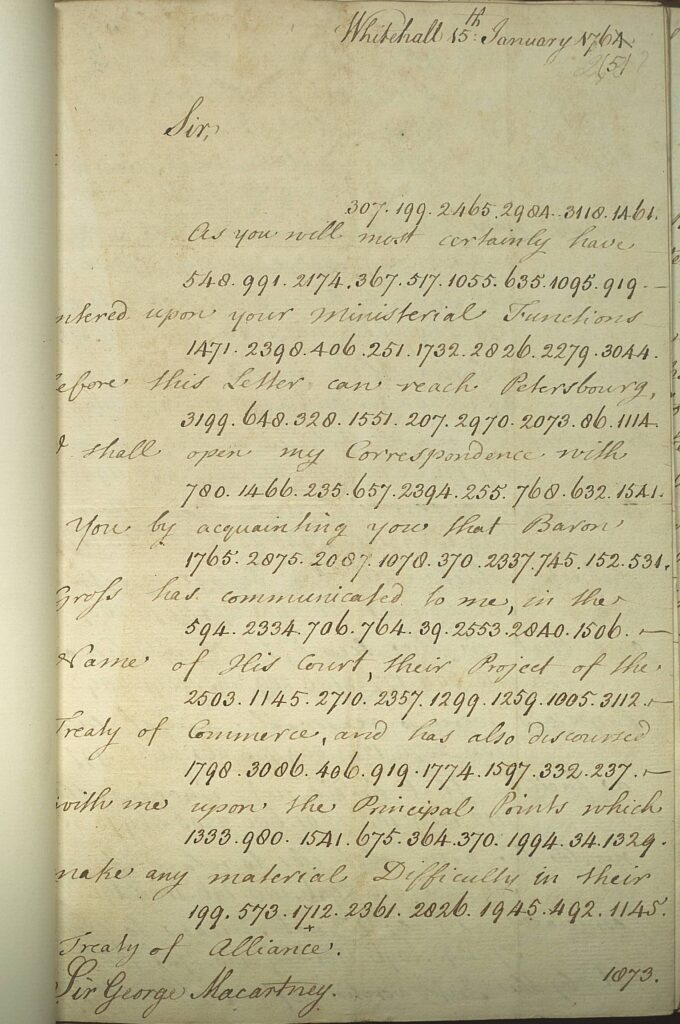 Whitehall 15th January 1764
(5)
Sir,
307. 199. 2465. 2984. 3118. 1461.
As you will most certainly have
548. 991. 2174. 367. 517. 1055. 635. 1095. 919.
ntered upon your Ministerial Functions
1471. 2398. 406. 251. 1732. 2826. 2279. 3044.
efore this Letter can reach Petersbourg,
3199. 648. 328. 1551. 207. 2970. 2073. 86. 1114.
shall open my Correspondence with
780. 1466. 235. 657. 2394. 255. 768. 632. 1541.
You by acquainting you that Baron
1765. 2875. 2087. 1078. 370. 2337. 745. 152. 531.
Gross has communicated to me, in the
594. 2334. 706. 764. 39. 2553. 2840. 1506.
Name of His Court, their Project of the
2503. 1145. 2710. 2357. 1299. 1259. 1005. 3112.
Treaty of Commerce, and has also discoursed
1798. 3086. 406. 919. 1774. 1597. 332. 237.
with me upon the Principal Points which
1333. 980. 1541. 675. 364. 370. 1994. 34. 1329.
make any material Difficulty in their
199. 573. 1712. 2361. 2826. 1945. 492. 1145.
Treaty of Alliance.
1873.
Sir George Macartney.